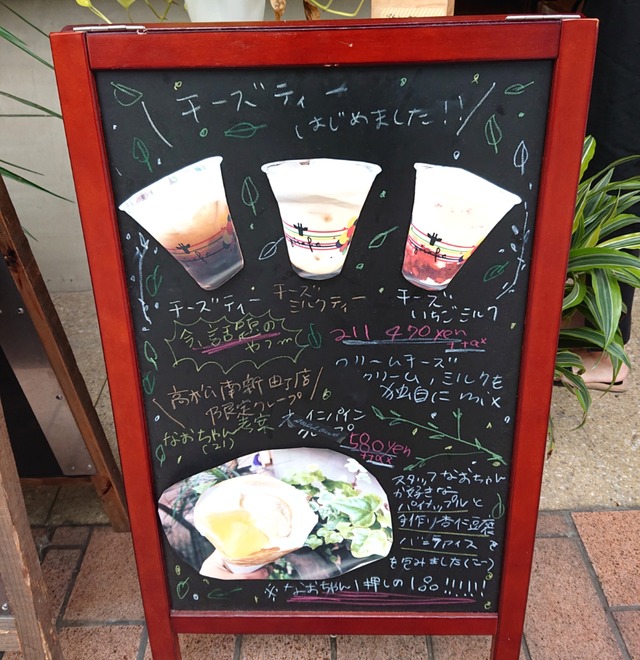 チーズティー
はじめました!!
チーズティー
チーズ
ミルクティー
チーズ
いちごミルク
今、話題の
やつ…
all 470yen
+tax
クリームチーズ
クリーム、ミルクを
独自にmix
高松南新町店
限定クレープ
なおちゃん考案
(21)
パイン
クレープ
580yen
+tax
スタッフなおちゃん
が好きな
パイナップルと
手作り杏仁豆腐
バニラアイスを
を包みました(ニコ)
※なおちゃん1押しの1品!!!!!!